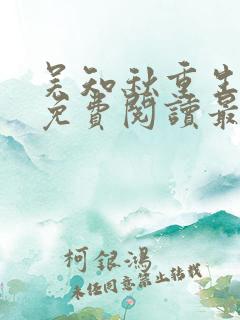 吴知秋重生
免費閱讀最
柯銀鴻
未经同意禁止转载